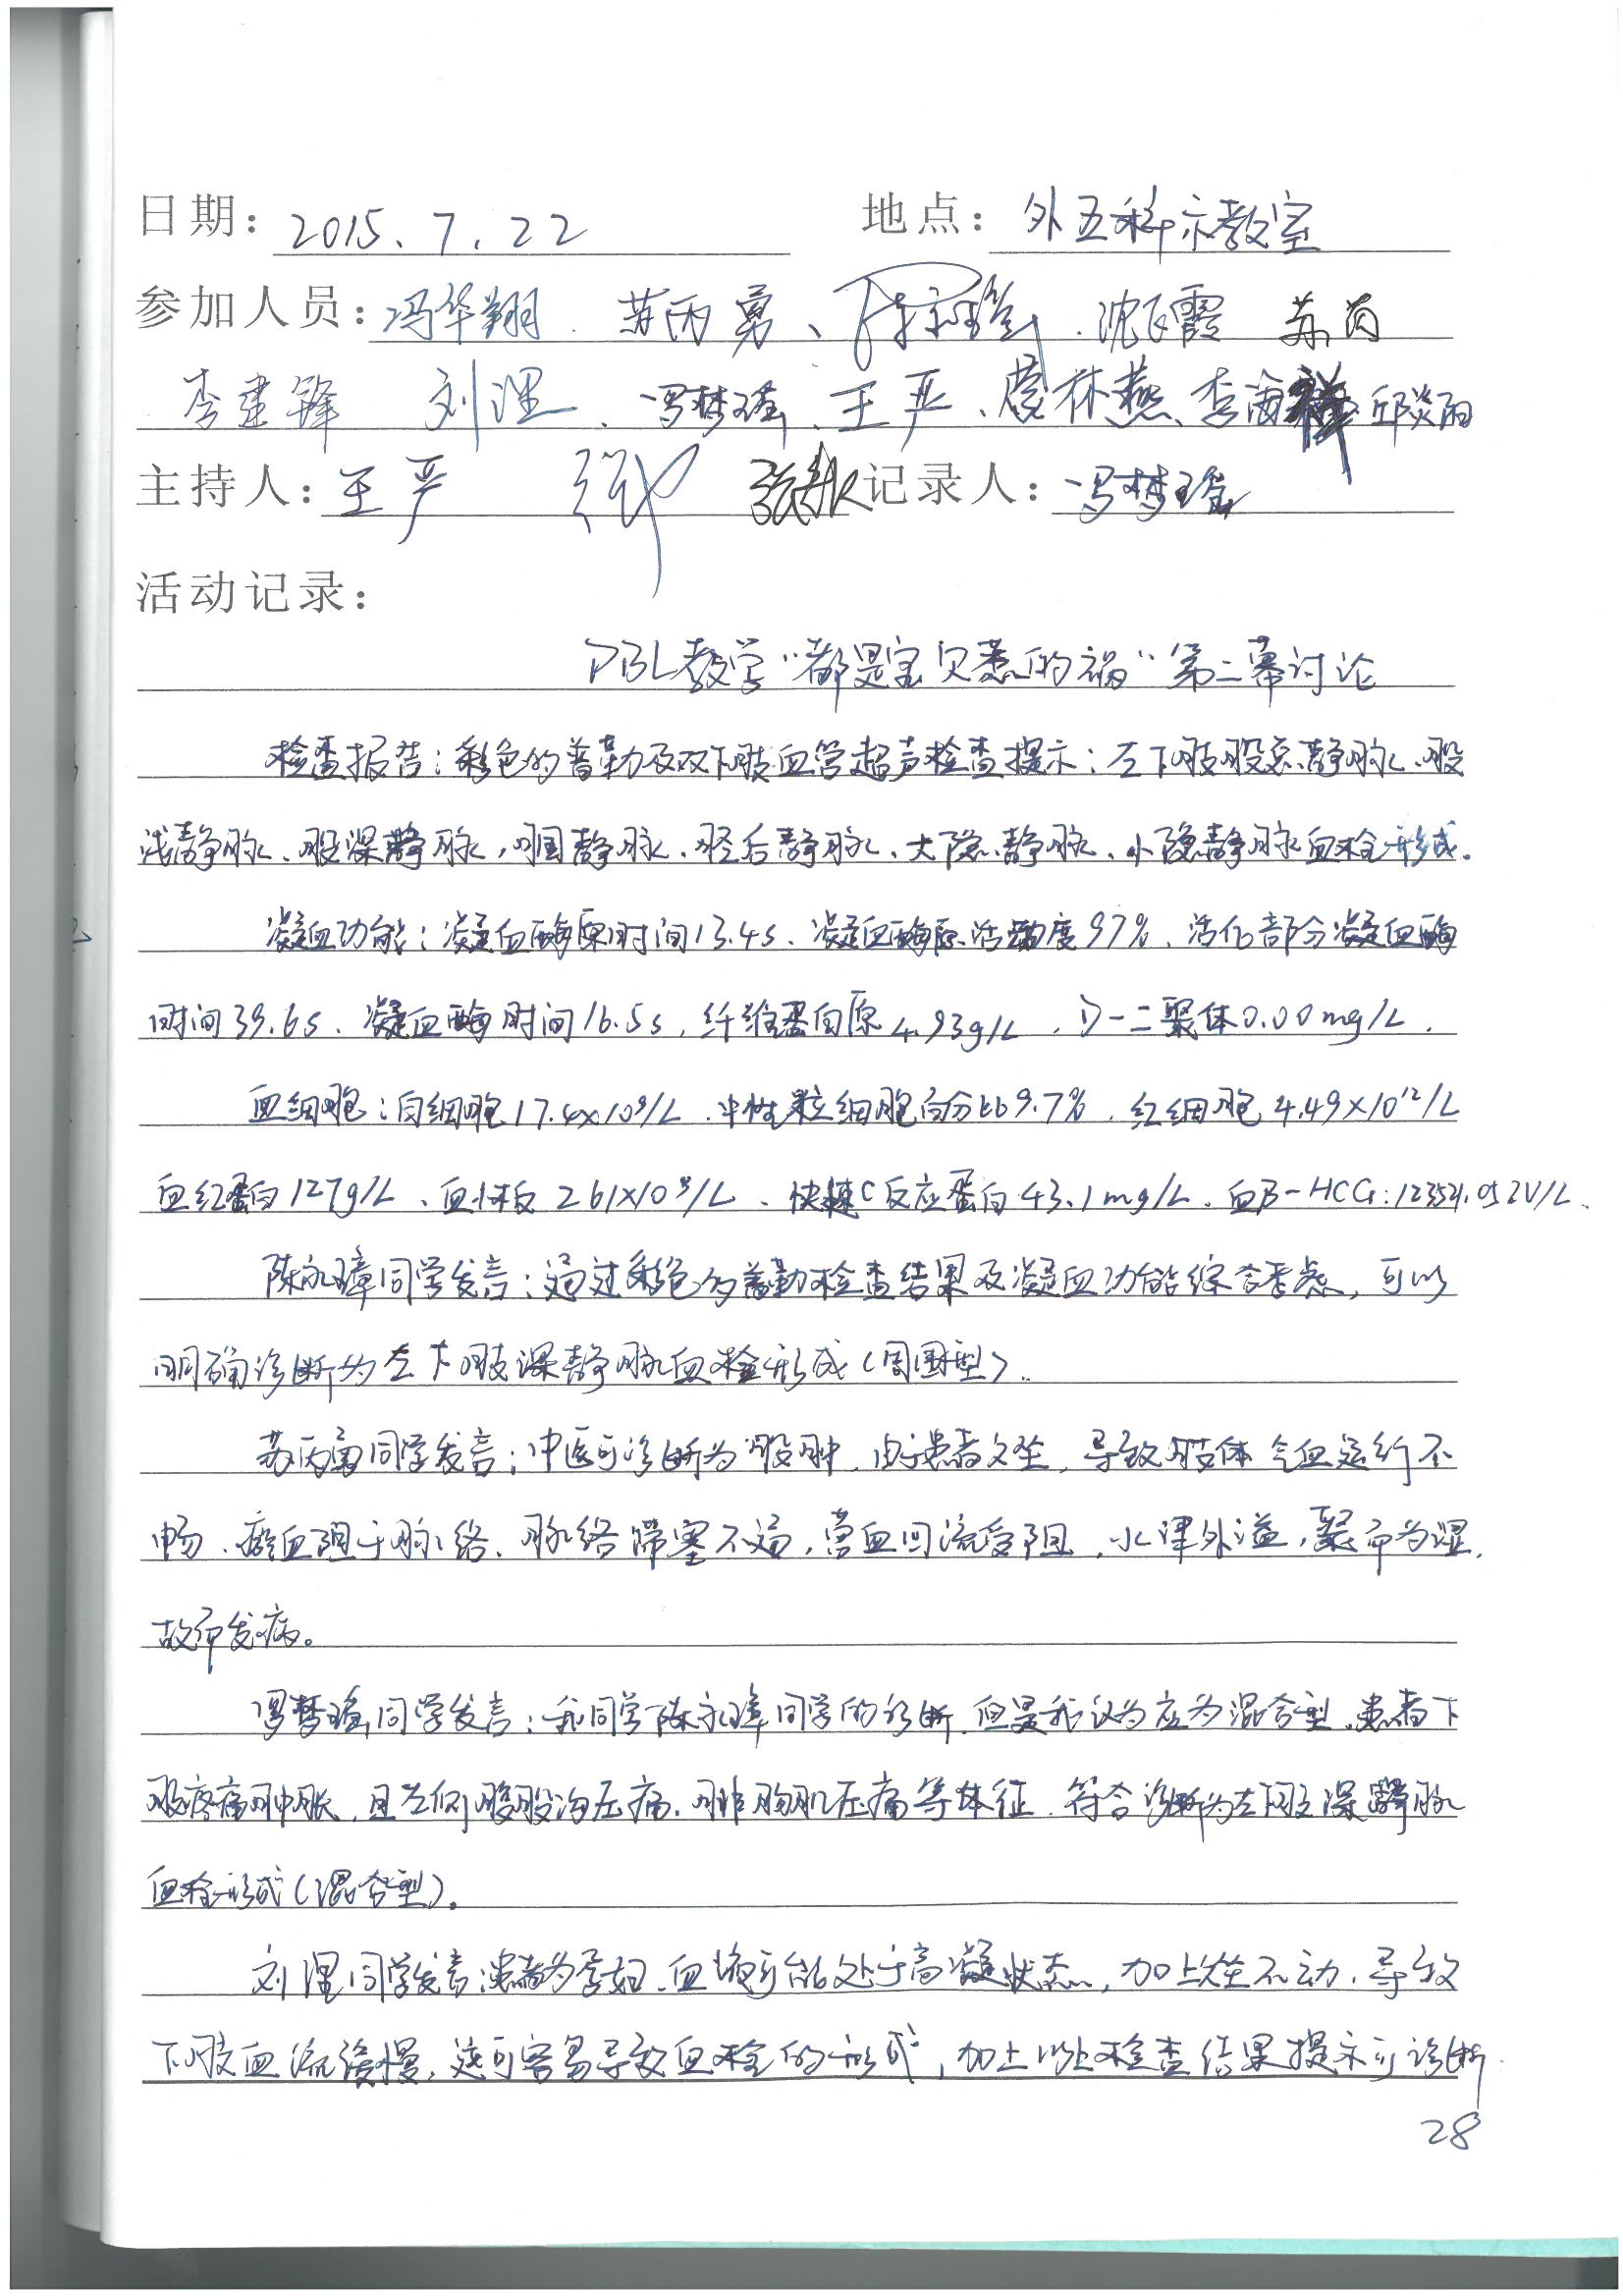 日期: 2015.7.22 地点: 外五科示教室
参加人员: 冯华翔、苏丙勇、沈 霞 苏茵
李建锋 刘浬、冯梦瑶、王严、 林燕、李海祥 邱炎阳
主持人: 王严 记录人: 冯梦瑶
活动记录:
PBL教学“都是宝贝惹的祸”第二幕讨论
检查报告:彩色的普勒及双下肢血管超声检查提示:左下肢股总静脉、股
浅静脉、股深静脉,腘静脉、胫后静脉、大隐静脉、小隐静脉血栓形成。
凝血功能:凝血酶原时间13.4s、凝血酶原活动度97%、活化部分凝血酶
时间39.6s、凝血酶时间16.5s,纤维蛋白原4.93g/L,D-二聚体0.00mg/L.
血细胞:白细胞17.4×10⁹/L、中性粒细胞百分比9.7%、红细胞4.49×10¹²/L
血红蛋白127g/L、血小板261×10⁹/L、快速C反应蛋白43.1mg/L、血β-HCG:12354.05IU/L.
陈永璋同学发言:通过彩色多普勒检查结果及凝血功能综合考虑,可以
明确诊断为左下肢深静脉血栓形成(周围型).
苏丙勇同学发言:中医可诊断为股肿,由于患者久坐,导致肢体气血运行不
畅、瘀血阻于脉络、脉络滞塞不通,营血回流受阻,水津外溢,聚而为湿,
故而发病。
冯梦瑶同学发言:我同学陈永璋同学的诊断,但是我认为应为混合型,患者下
肢疼痛肿胀,且左侧腹股沟压痛,腓肠肌压痛等体征,符合诊断为左下肢深静脉
血栓形成(混合型)。
刘浬同学发言:患者为孕妇,血液可能处于高凝状态,加上久坐不动,导致
下肢血流缓慢,这可容易导致血栓的形成,加上以上检查结果提示可诊断
28